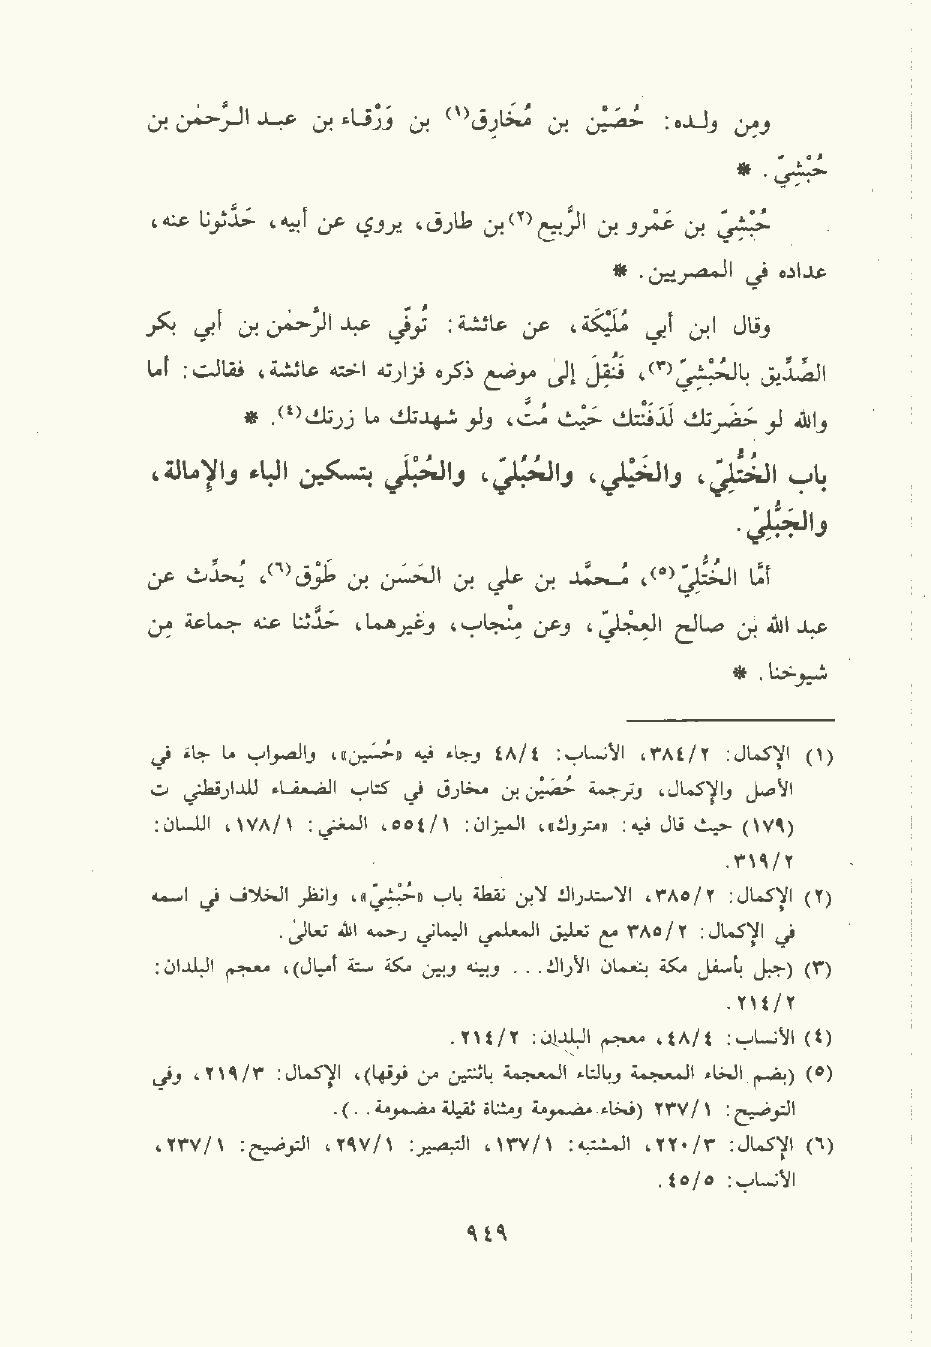 ومِن ولـده: حُصَيْن بن مُخَارِق(١) بن وَرْقـاء بن عبـد الـرَّحمٰن بن
حُبْشِيّ. *
حُبْشِيّ بن عَمْرو بن الرَّبيع(٢) بن طارق، يروي عن أبيه، حَدَّثونا عنه،
عداده في المصريين. *
وقال ابن أبي مُلَيْكَة، عن عائشة: تُوفّي عبد الرَّحمٰن بن أبي بكر
الصِّدِّيق بالحُبْشِيّ(٣)، فَنُقِلَ إلىٰ موضع ذكره فزارته اخته عائشة، فقالت: أما
والله لو حَضَرتك لَدَفَنْتك حَيْث مُتَّ، ولو شهدتك ما زرتك(٤). *
باب الخُتَّلِيّ، والخَيْلي، والحُبُليّ، والحُبْلَي بتسكين الباء والإمالة،
والجَبُّلِيّ.
أمَّا الخُتَّلِيّ(٥)، مُـحمَّد بن علي بن الحَسَن بن طَوْق(٦)، يُحدِّث عن
عبد الله بن صالح العِجْليّ، وعن مِنْجاب، وغيرهما، حَدَّثنا عنه جماعة مِن
شيوخنا. *
(١) الإكمال: ٣٨٤/٢، الأنساب: ٤٨/٤ وجاء فيه «حُسَين»، والصواب ما جاءَ في
الأصل والإكمال، وترجمة حُصَيْن بن مخارق في كتاب الضعفـاء للدارقطني ت
(١٧٩) حيث قال فيه: «متروك»، الميزان: ٥٥٤/١، المغني: ١٧٨/١، اللسان:
٣١٩/٢.
(٢) الإكمال: ٣٨٥/٢، الاستدراك لابن نقطة باب «حُبْشِيّ»، وانظر الخلاف في اسمه
في الإكمال: ٣٨٥/٢ مع تعليق المعلمي اليماني رحمه الله تعالىٰ.
(٣) (جبل بأسفل مكة بنعمان الأراك... وبينه وبين مكة ستة أميال)، معجم البلدان:
٢١٤/٢.
(٤) الأنساب: ٤٨/٤، معجم البلدان: ٢١٤/٢.
(٥) (بضم الخاء المعجمة وبالتاء المعجمة باثنتين من فوقها)، الإكمال: ٢١٩/٣، وفي
التوضيح: ٢٣٧/١ (فخاء مضمومة ومثناة ثقيلة مضمومة..).
(٦) الإكمال: ٢٢٠/٣، المشتبه: ١٣٧/١، التبصير: ٢٩٧/١، التوضيح: ٢٣٧/١،
الأنساب: ٤٥/٥.
٩٤٩